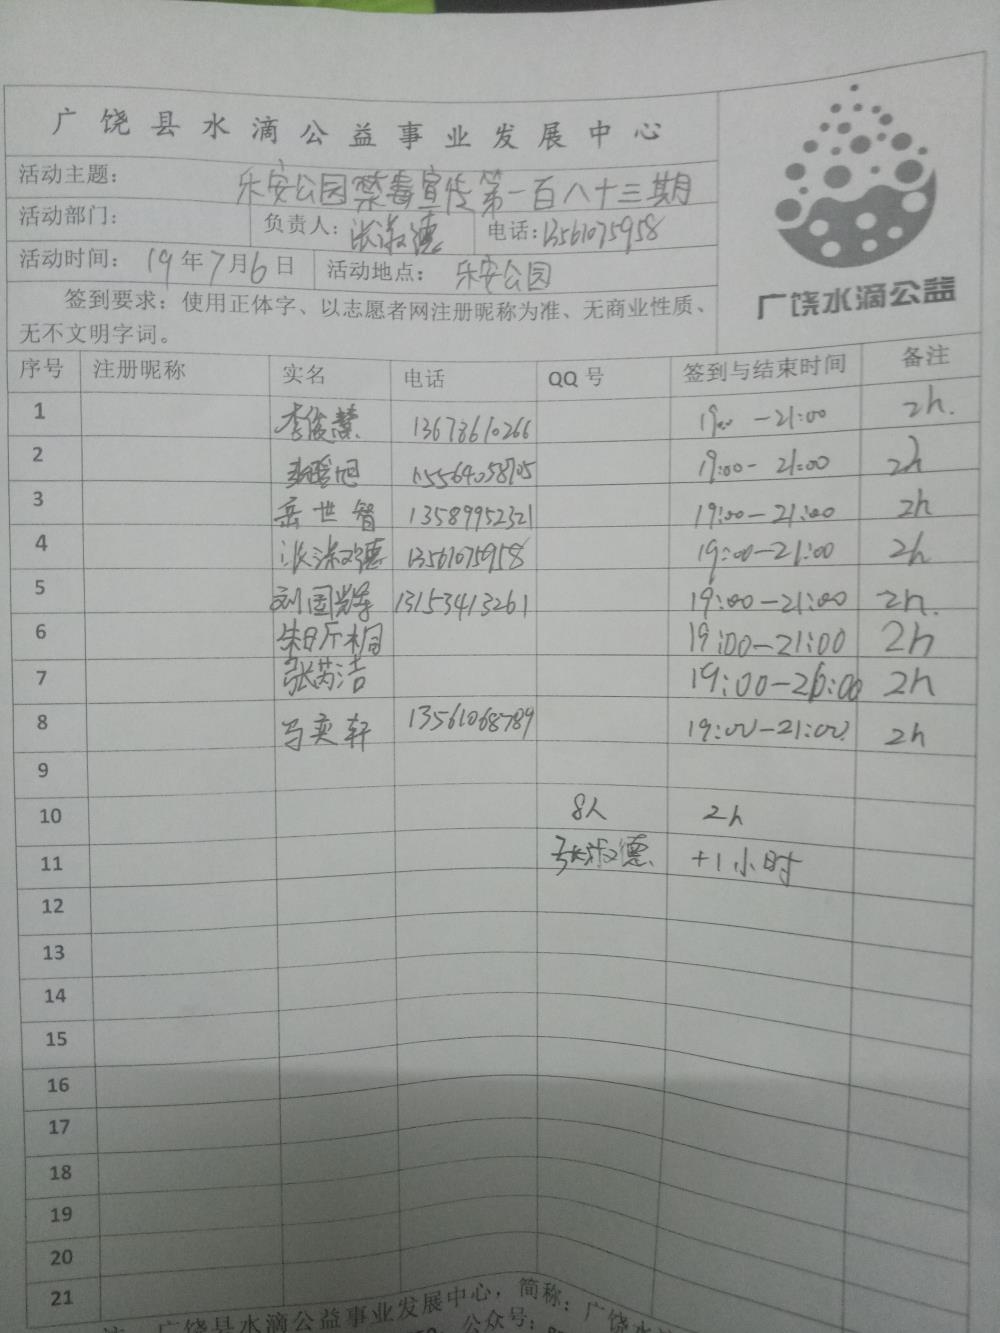 广饶县水滴公益事业发展中心
活动主题: 乐安公园禁毒宣传第一百八十三期
活动部门: 负责人: 张淑德 电话: 13561075958
活动时间: 19年7月6日 活动地点: 乐安公园
签到要求：使用正体字、以志愿者网注册昵称为准、无商业性质、
无不文明字词。
广饶水滴公益
序号 注册昵称 实名 电话 QQ号 签到与结束时间 备注
1 李俊慧 13678610266 19:00-21:00 2h.
2 15564058705 19:00-21:00 2h
3 岳世智 13589952321 19:00-21:00 2h
4 张淑德 13561075958 19:00-21:00 2h
5 刘国辉 13153413261 19:00-21:00 2h.
6 19:00-21:00 2h
7 张芮洁 19:00- 2h
8 马奕轩 13561068789 19:00-21:00 2h
9
10 8人 2h
11 张淑德 +1小时
12
13
14
15
16
17
18
19
20
21
广饶县水滴公益事业发展中心，简称：广饶水
公众号: